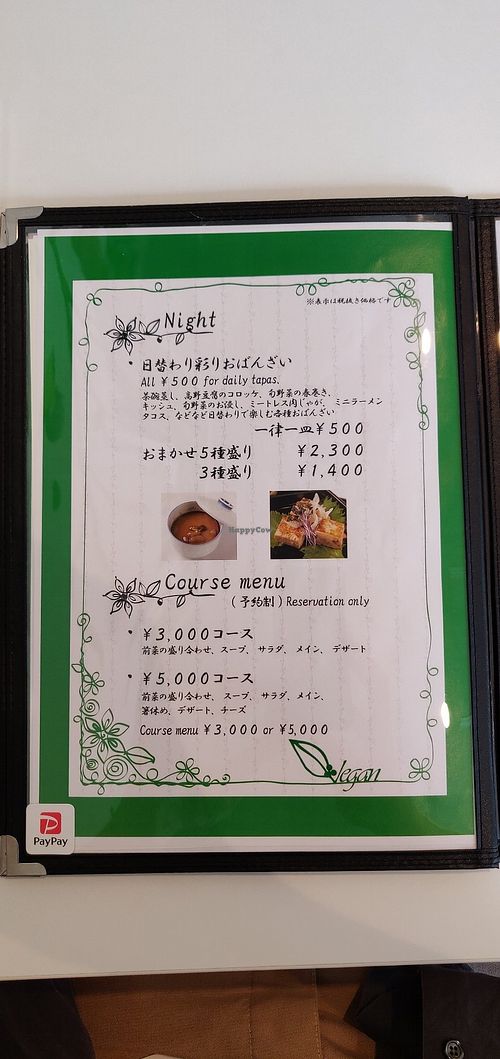 ※表示は税抜き価格です
Night
・日替わり彩りおばんざい
All ¥500 for daily tapas.
茶碗蒸し、高野豆腐のコロッケ、旬野菜の春巻き、
キッシュ、旬野菜のお浸し、ミートレス肉じゃが、ミニラーメン
タコス、などなど日替わりで楽しむ各種おばんざい
一律一皿¥500
おまかせ5種盛り ¥2,300
3種盛り ¥1,400
HappyCow
Course menu
(予約制) Reservation only
・¥3,000コース
前菜の盛り合わせ、スープ、サラダ、メイン、デザート
・¥5,000コース
前菜の盛り合わせ、スープ、サラダ、メイン、
箸休め、デザート、チーズ
Course menu ¥3,000 or ¥5,000
Vegan
PayPay